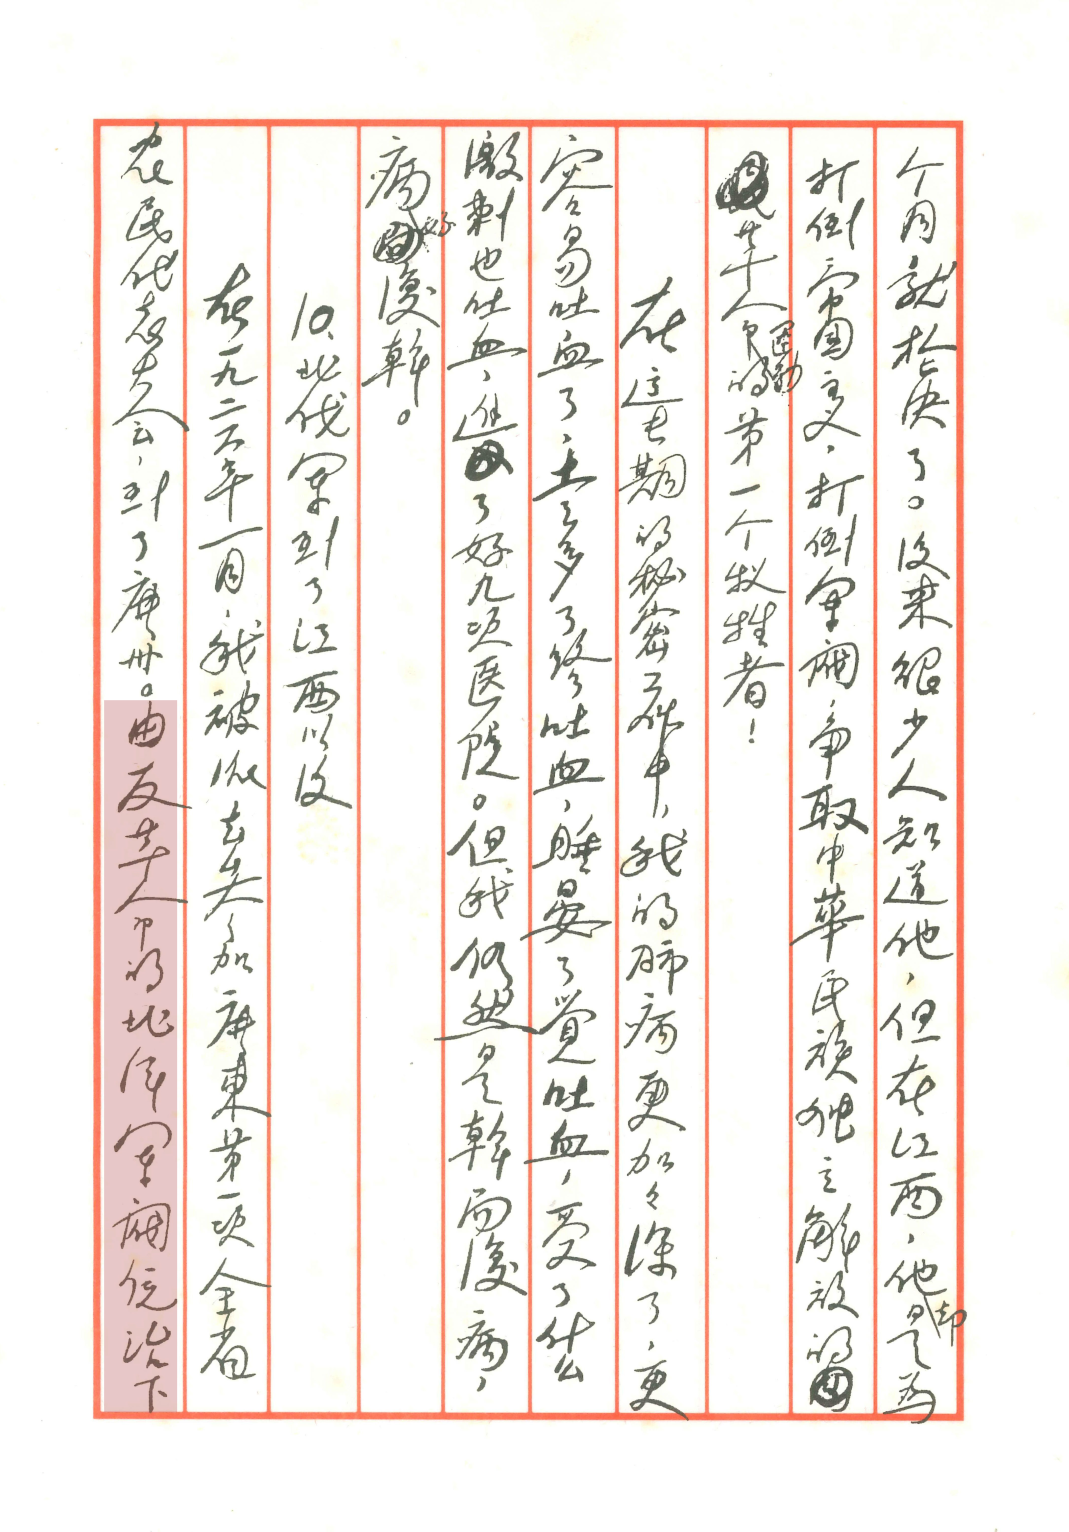 个月就枪决了。后来很少人知道他，但在江西，他却是为
打倒帝国主义，打倒军阀，争取中华民族独立解放的
共产人的运动的第一个牺牲者！
在这长期的秘密工作中，我的肺病更加々深了，更
容々易吐血了，土多了终吐血，睡晏了觉吐血，受了什么
激刺也吐血，进了好几次医院。但我仍然是幹而复病，
病好复幹。
10、北伐军到了江西以后
在一九二六年一月，我被派去参加广东第一次全省
农民代表大会，到了广州。由反共人的北洋军阀统治下